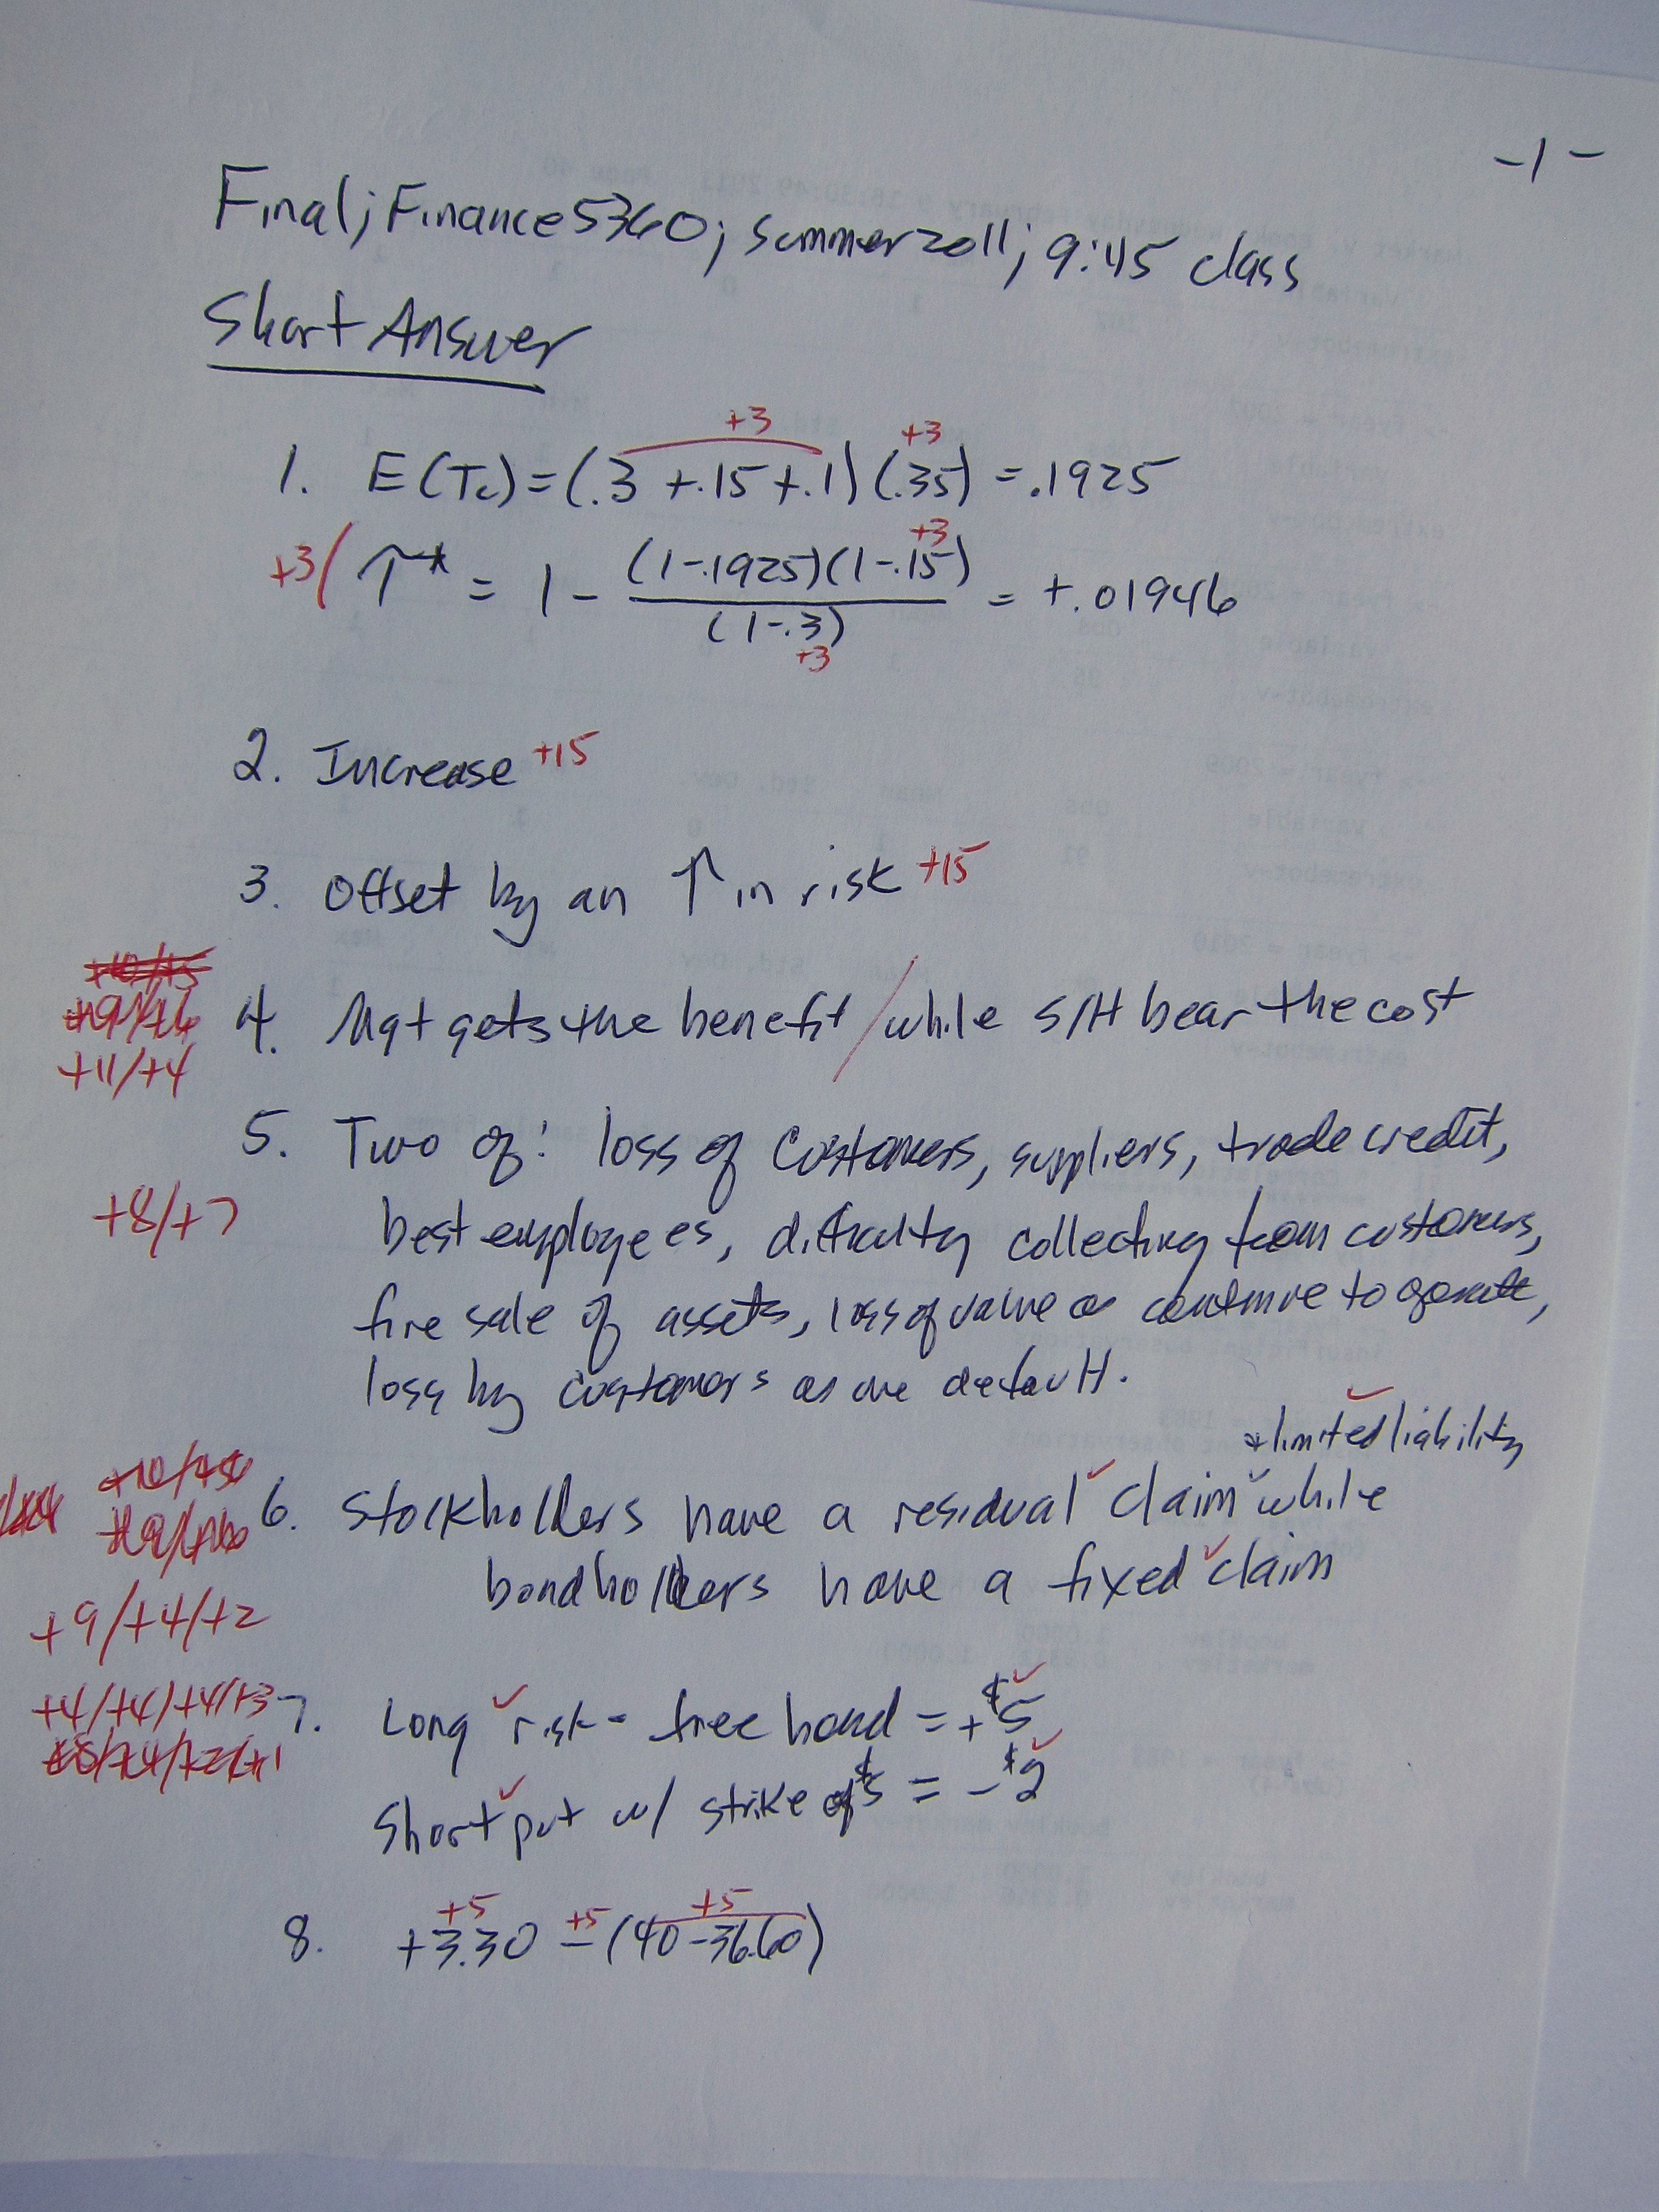 -1-
Final; Finance 5360; Summer 2011; 9:45 class
Short Answer
+3 +3
1. E(Tc) = (.3 + .15 + .1) (.35) = .1925
+3
+3/ T* = 1 - (1-.1925)(1-.15)
(1-.3) = +.01946
+3
2. Increase +15
3. Offset by an ↑ in risk +15
4. Mgt gets the benefit / while S/H bear the cost
+11/+4
5. Two of: loss of customers, suppliers, trade credit,
+8/+7 best employees, difficulty collecting from customers,
fire sale of assets, loss of value as continue to operate,
loss by customers as we default.
+ limited liability
6. Stockholders have a residual claim while
bondholders have a fixed claim
+9/+4/+2
+4/+4/+4/+3 7. Long risk-free bond = +$5
Short put w/ strike of $5 = -$2
+5 +5 +5
8. +3.30 - (40-36.60)